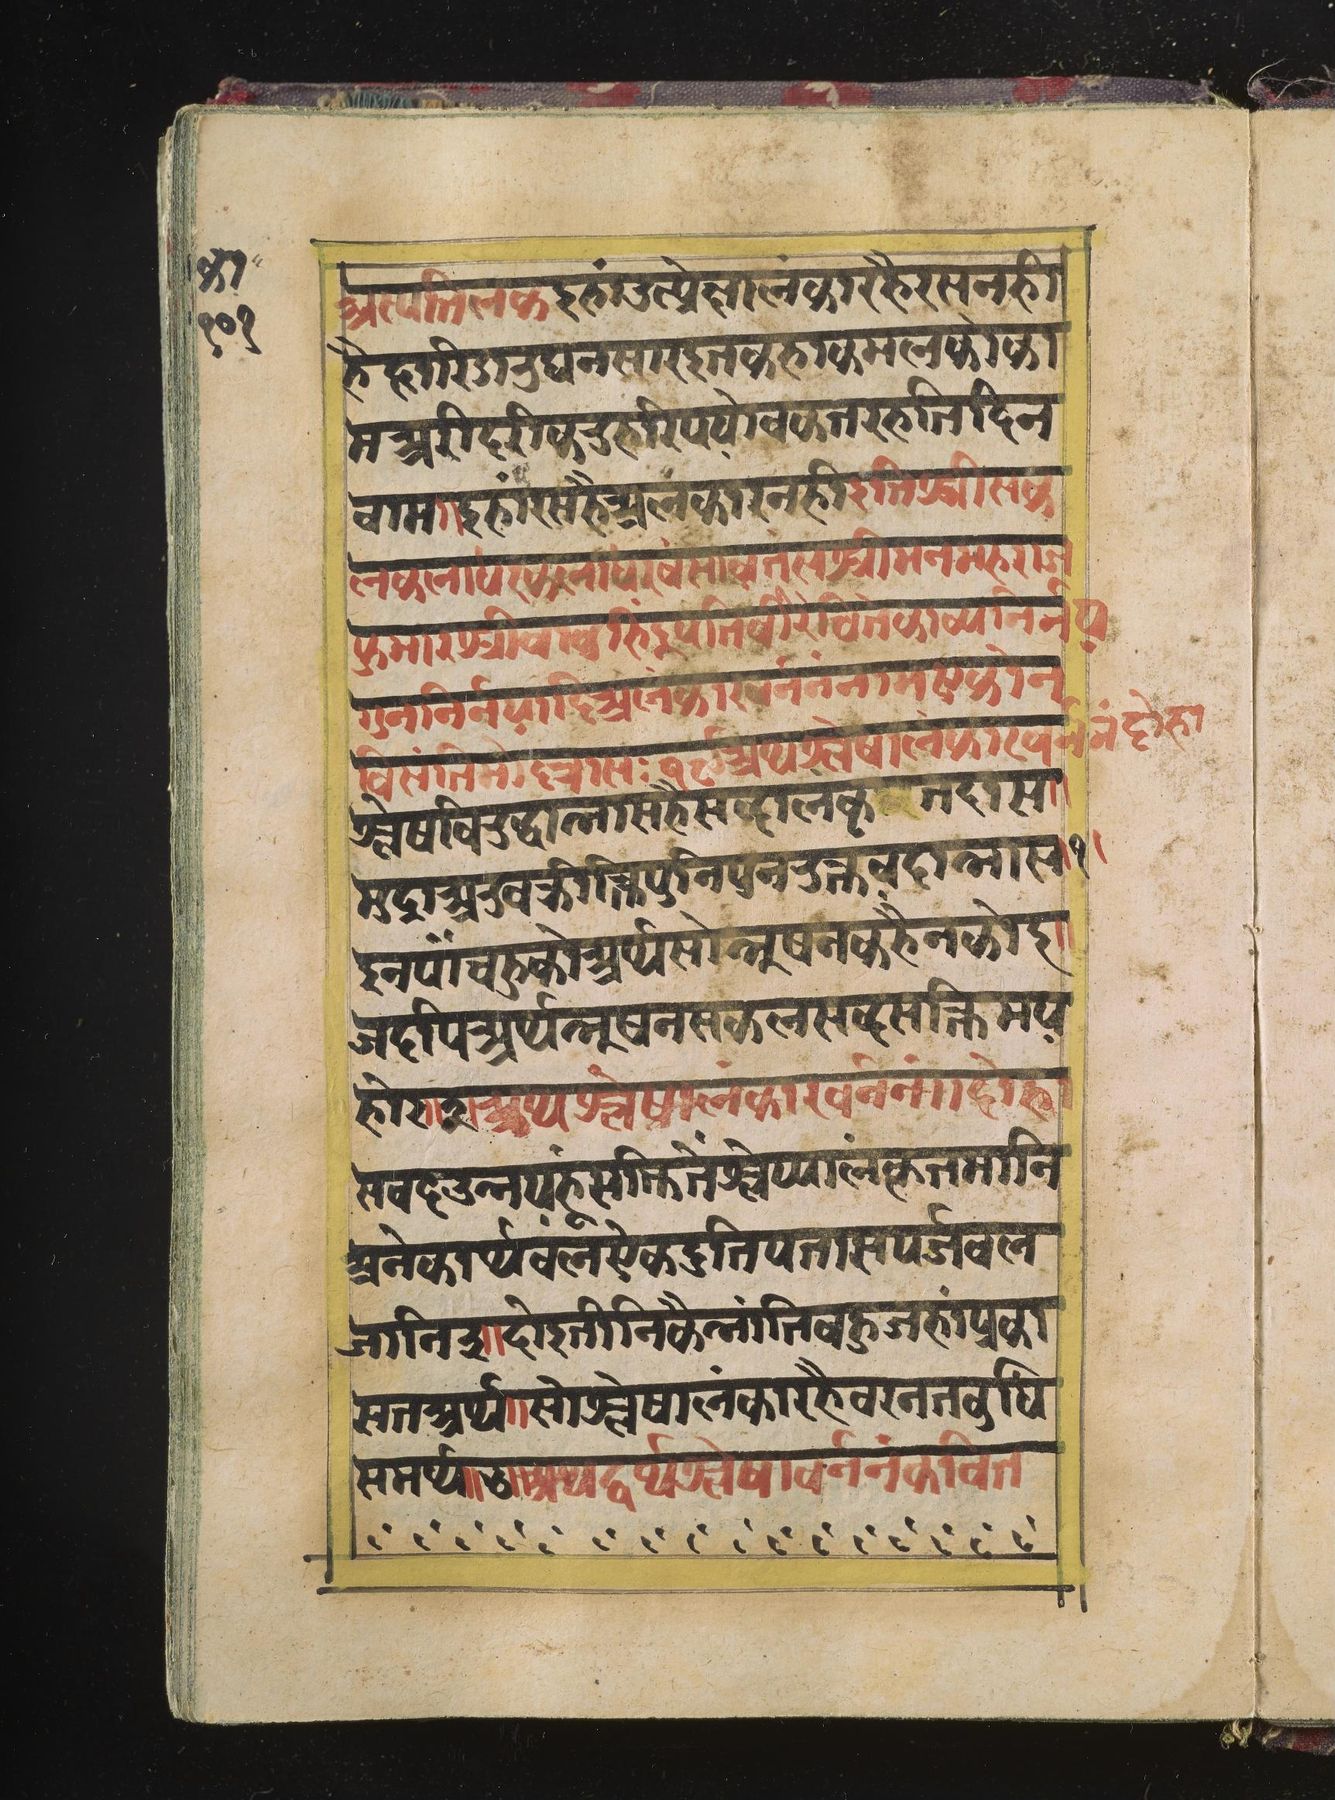 का
१०१
अस्य तिलक इहां उत्प्रेक्षालंकार है रस नही
है द्वारि डारु घनसार इत कहा कमल को का
म अरी दूरी करु हारि पयो वकत रहति दिन
वाम ॥ इहां रस है अलंकार नही इति श्री सक
ल कलाधर कलाधर वंसावतंस श्रीमन महाराज
कुमार श्री बाबु हिंदूपति विरचिते काव्य निर्नय
गुन निर्नयादि अलंकार वर्ननं नाम एकोन
विंसतितमोल्लासः १९ अथ श्लेषालंकार वर्ननं दोहा
श्लेष विरुद्धाभास है सब्दालंकृत दास ॥
मुद्रा अरु वक्रोक्ति पुनि पुनरुक्तवदाभास १
इन पांचहु को अर्थ सो भूषन कहै न कोइ ॥
जदपि अर्थ भूषन सकल सब्द सक्ति मय
होइ ॥ २ ॥ अथ श्लेषालंकार वर्ननं ॥ दोहा
सबद उभय हूं सक्ति तें श्लेषालंकृत मानि
अनेकार्थ बल एक दुति पतासपर्ज बल
जानि ३ ॥ दोइ तीनि कै भांति बहु जहां प्रका
सत अर्थ ॥ सो श्लेषालंकार है वरनत बुधि
समर्थ ॥ ४ ॥ अथ द्वर्थ श्लेषा वर्ननं कवित